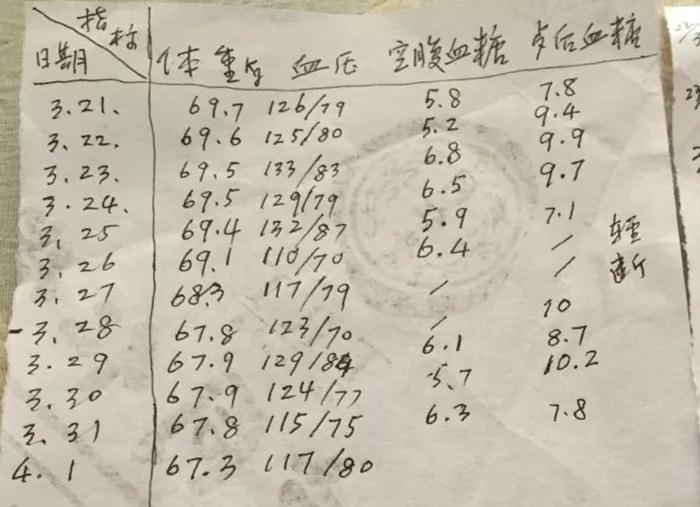 指标
日期 体重斤 血压 空腹血糖 歺后血糖
3.21. 69.7 126/79 5.8 7.8
3.22. 69.6 125/80 5.2 9.4
3.23. 69.5 133/83 6.8 9.9
3.24. 69.5 129/79 6.5 9.7
3.25 69.4 132/87 5.9 7.1
3.26 69.1 110/70 6.4 / 轻
3.27 68.3 117/79 / / 断
3.28 67.8 123/70 / 10
3.29 67.9 129/84 6.1 8.7
3.30 67.9 124/77 5.7 10.2
3.31 67.8 115/75 6.3 7.8
4.1 67.3 117/80